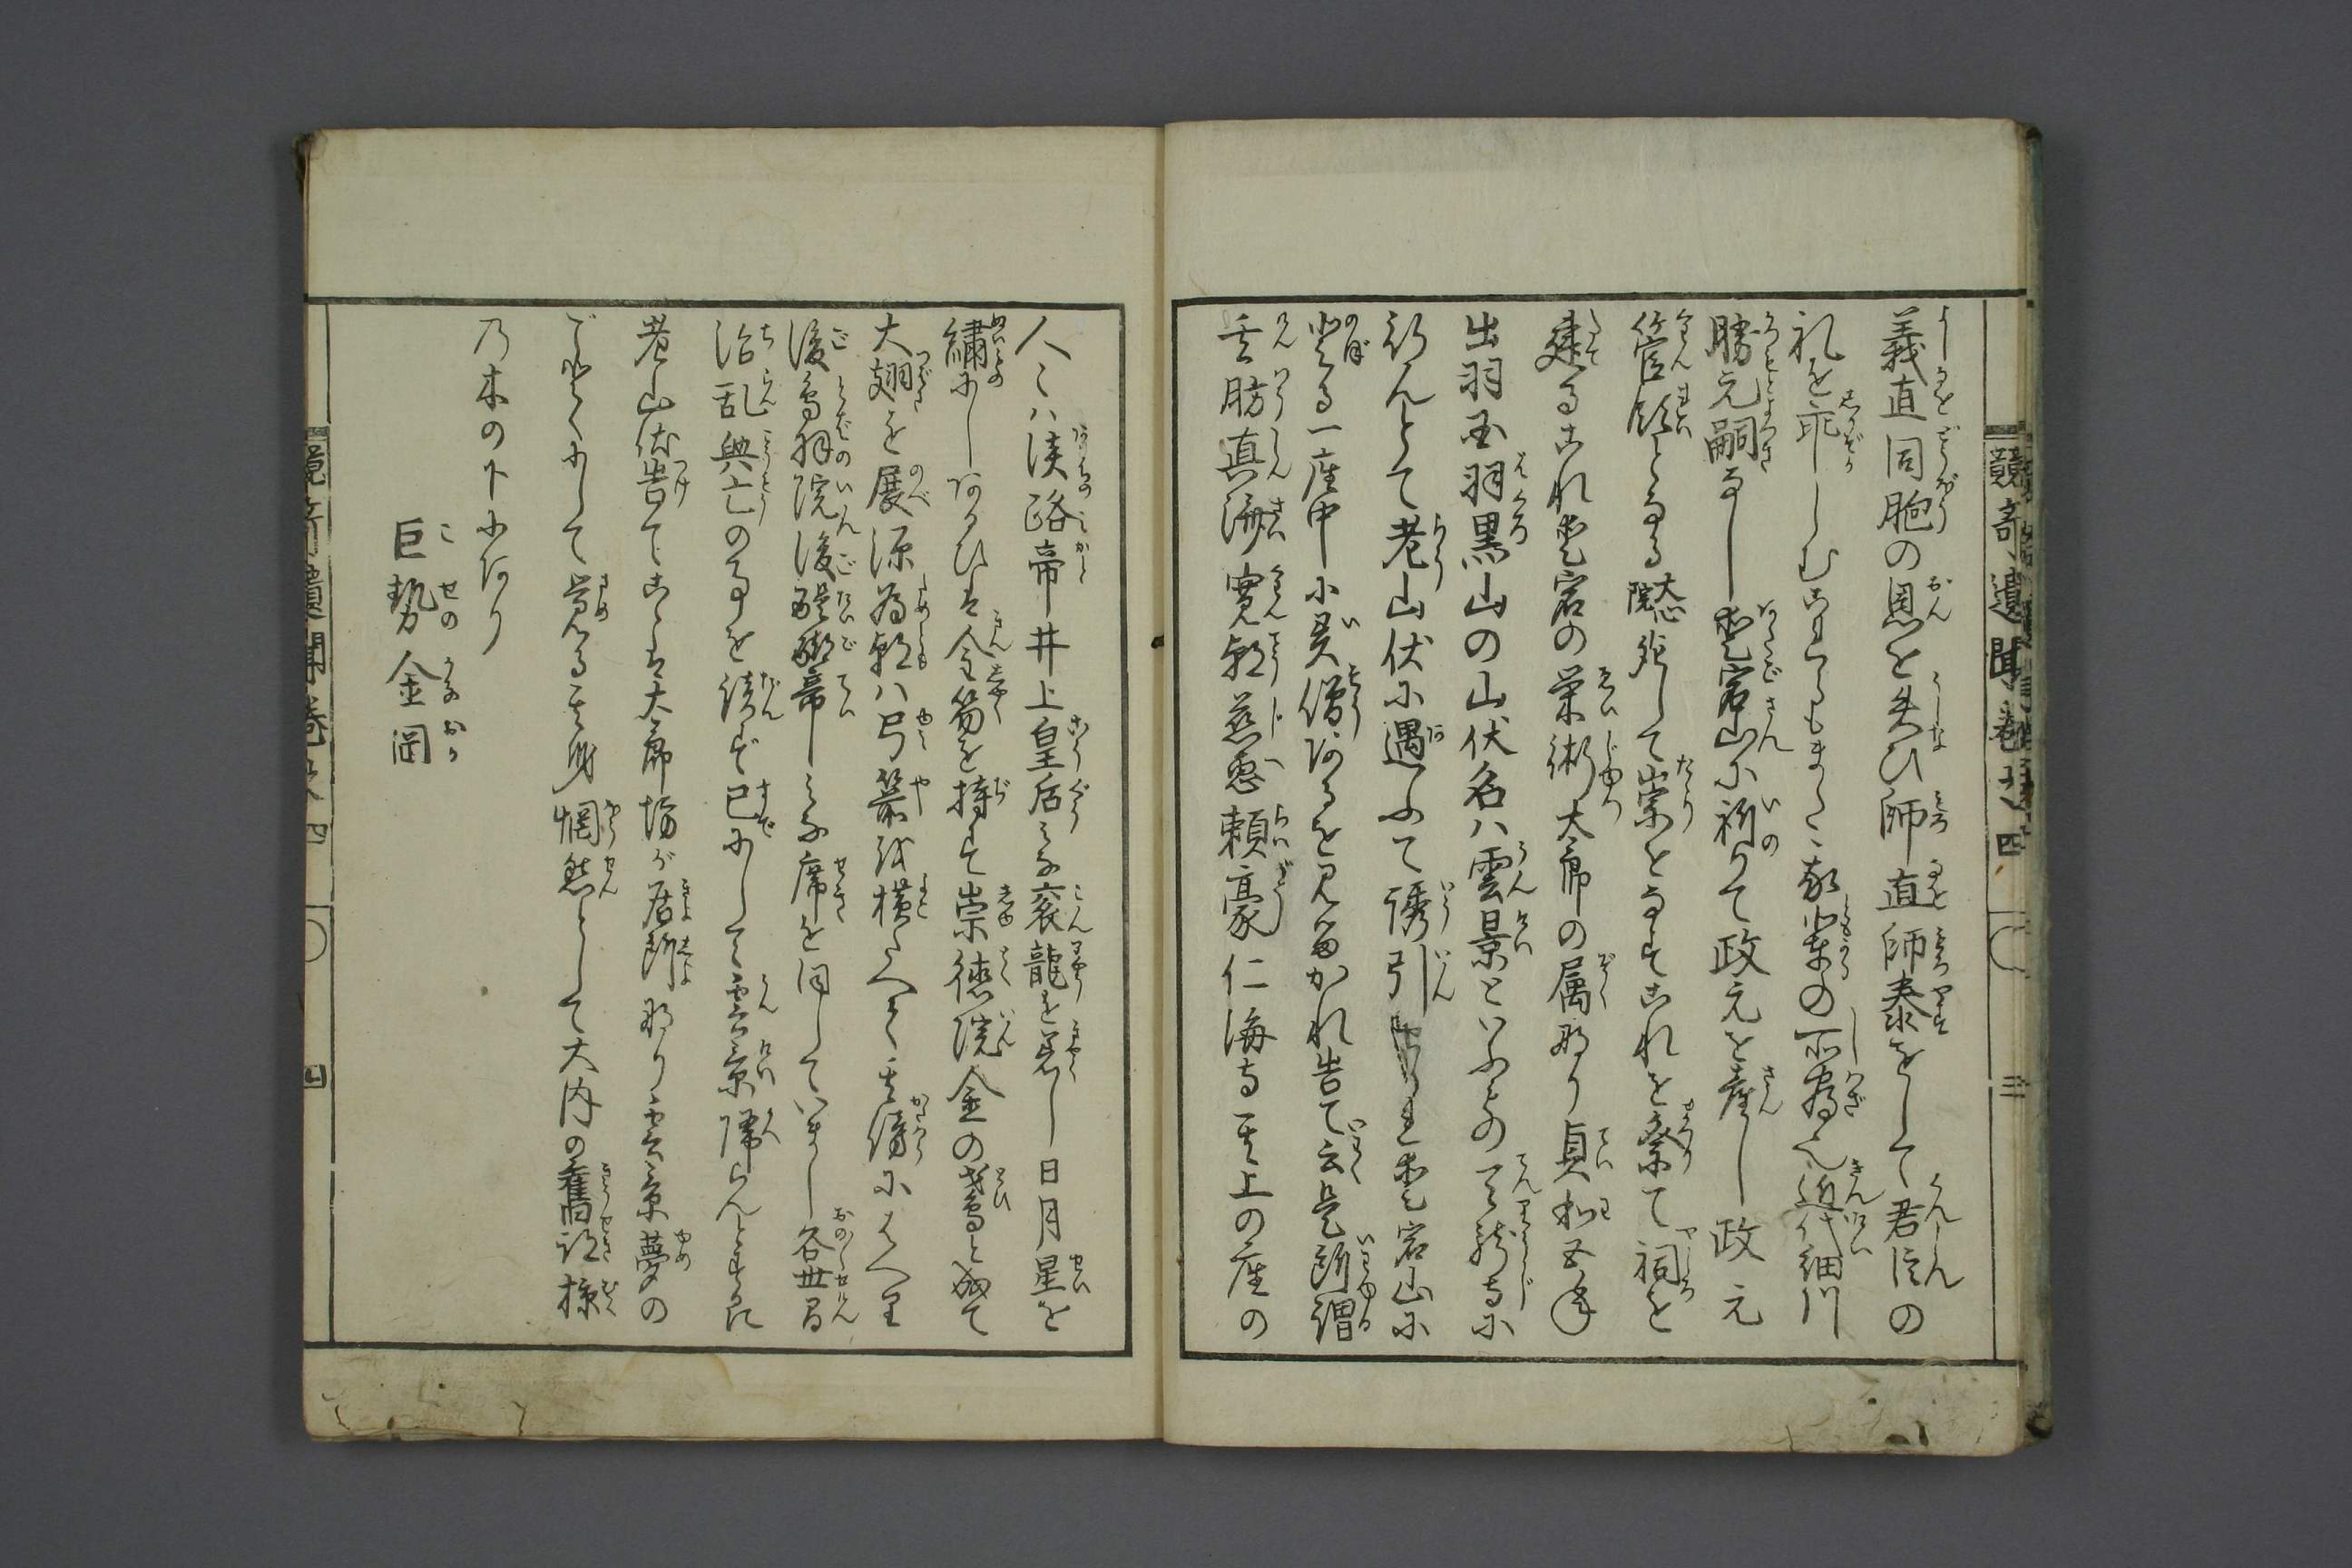 義直同胞の恩を失ひ師直師泰をして君臣の
礼を乖しむこれらもまた我輩の所為也近代細川
勝元嗣なし愛宕山に祈りて政元を産し政元
管領となる大心院殂して崇となすこれを祭て祠を
建るこれ愛宕の栄術太郎の属なり貞和五年
出羽国羽黒山の山伏名ハ雲景といふもの天龍寺に
行んとて老山伏に遇ふて誘引せられ愛宕山に
登る一座中に異僧あるを見るかれ告て云是所謂
玄肪真済寛朝慈恵頼豪仁海等其上の座の
人々ハ淡路帝井上皇后みな袞龍を着し日月星を
繍にしあるひは金笏を持す崇徳院金の鵄と成て
大翅を展源為朝ハ弓箭を横たへて其傍にはべり
後鳥羽院後醍醐帝みな席を同していまし各世間
治乱興亡の事を談ず已にして雲景帰らんとするに
老山伏告てこゝは太郎坊が居所なり雲景夢の
ごとくにして覚る其身惘然として大内の旧跡椋
乃木の下にあり
巨勢金岡
競奇遺聞巻之四
三
競奇遺聞巻之四
四